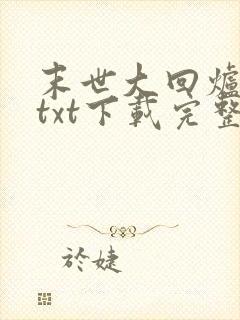 末世大回爐
txt下載完整
於婕